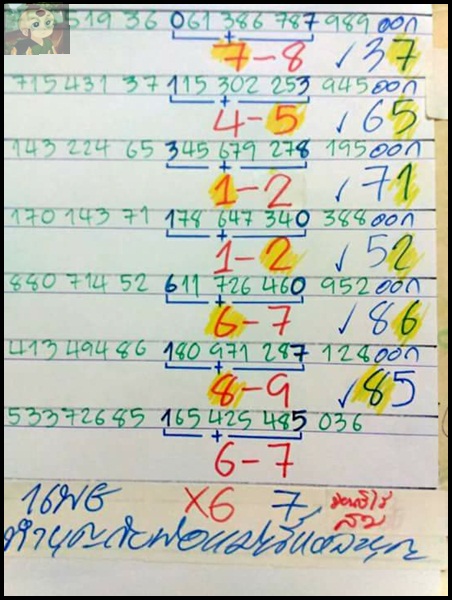 519 36 061 386 787 989 ออก
7-8 ✓37
715 431 37 115 302 253 945 ออก
4-5 ✓65
143 224 65 345 679 278 195 ออก
1-2 ✓71
170 143 71 178 647 340 388 ออก
1-2 ✓52
880 714 52 611 726 460 952 ออก
6-7 ✓86
413 494 86 180 971 287 128 ออก
8-9 ✓85
533 726 85 165 425 485 036
6-7
16พย x6 7